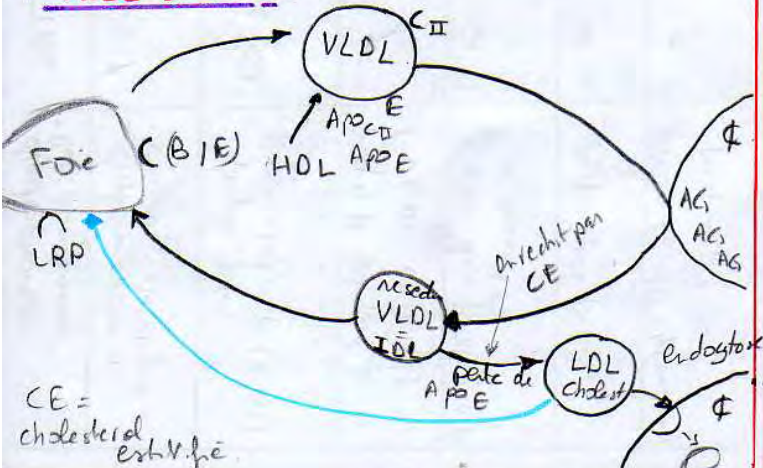 C II
VLDL
E
Apo CII
HDL Apo E
Foie
C (B/E)
LRP
₵
AG
AG
AG
enrechit par
CE
residu
VLDL
=
IDL
perte de
Apo E
LDL
cholest
endoytose
₵
CE =
cholesterol